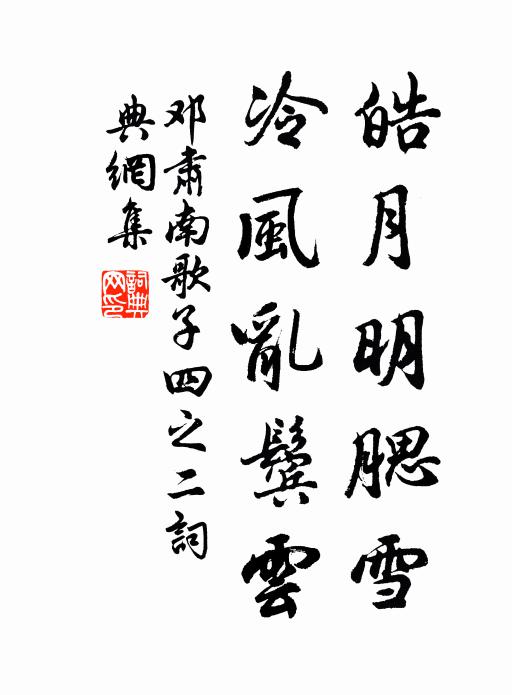 皓月明腮雪
冷風亂鬢雲
邓肅南歌子四之二詞
典網集
詞典
网印